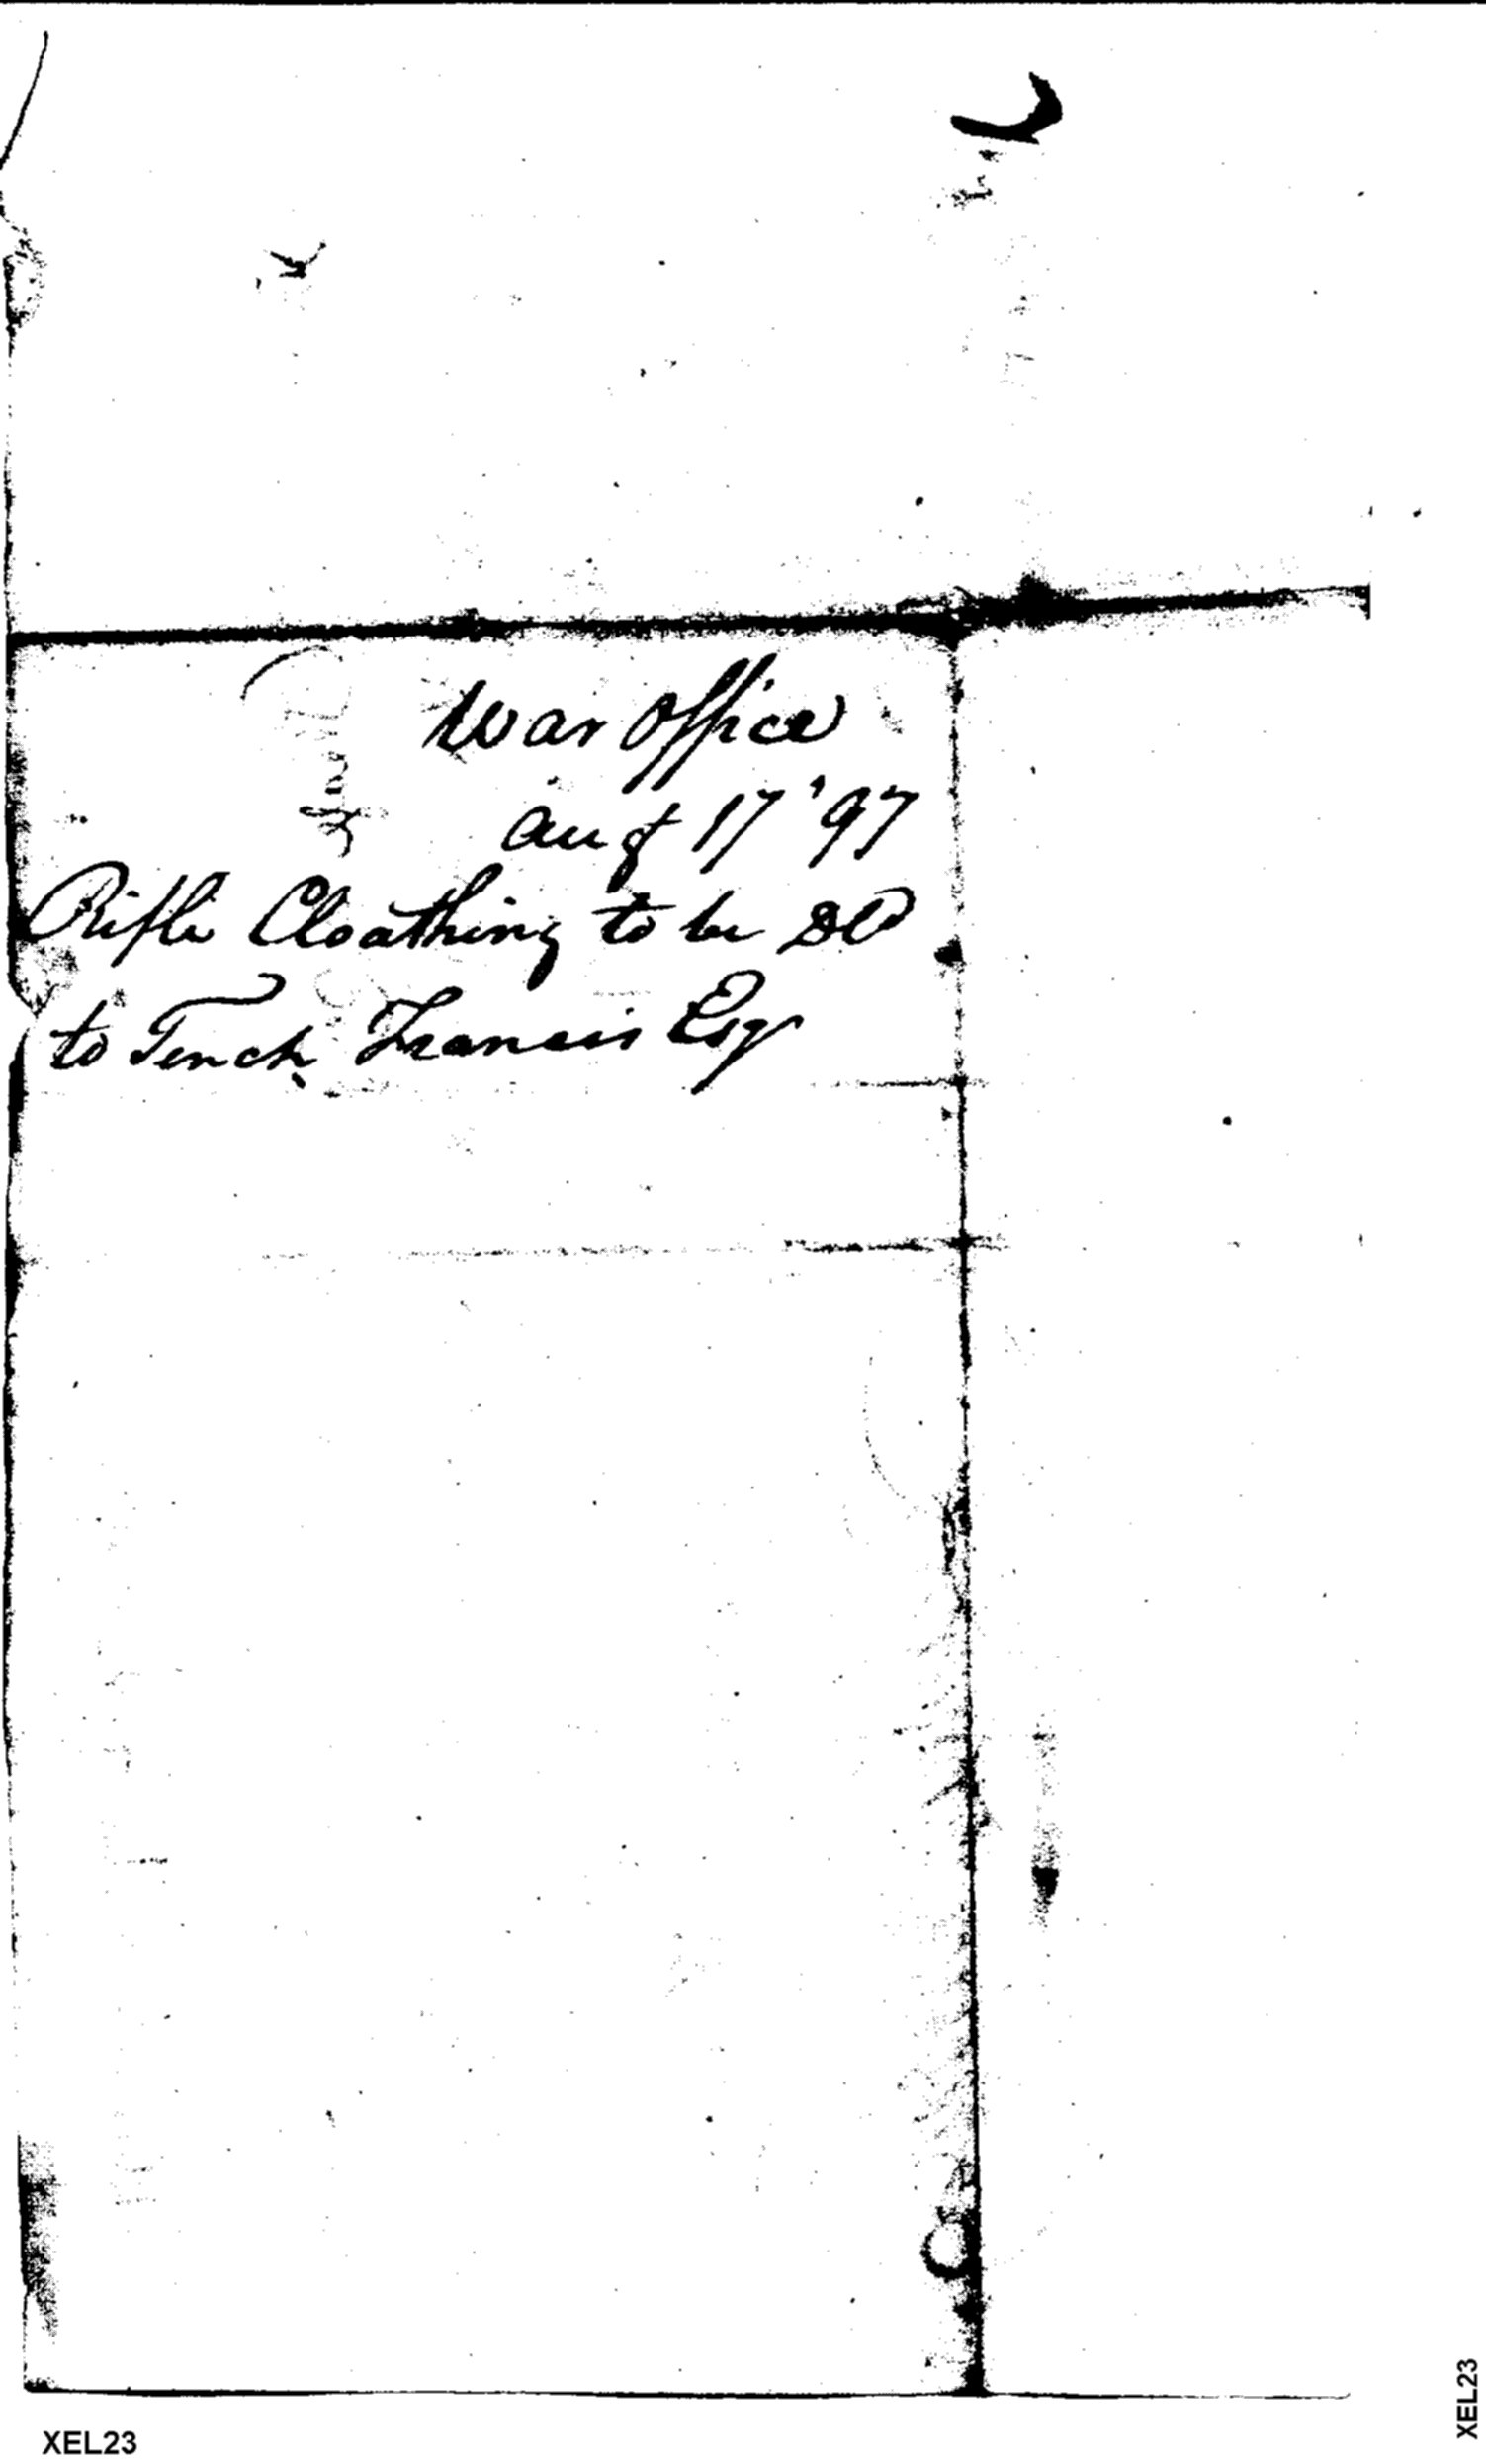 War Office
Augt 17 '97
Rifle Cloathing to be DD
to Tench Francis Esqr
XEL23
XEL23